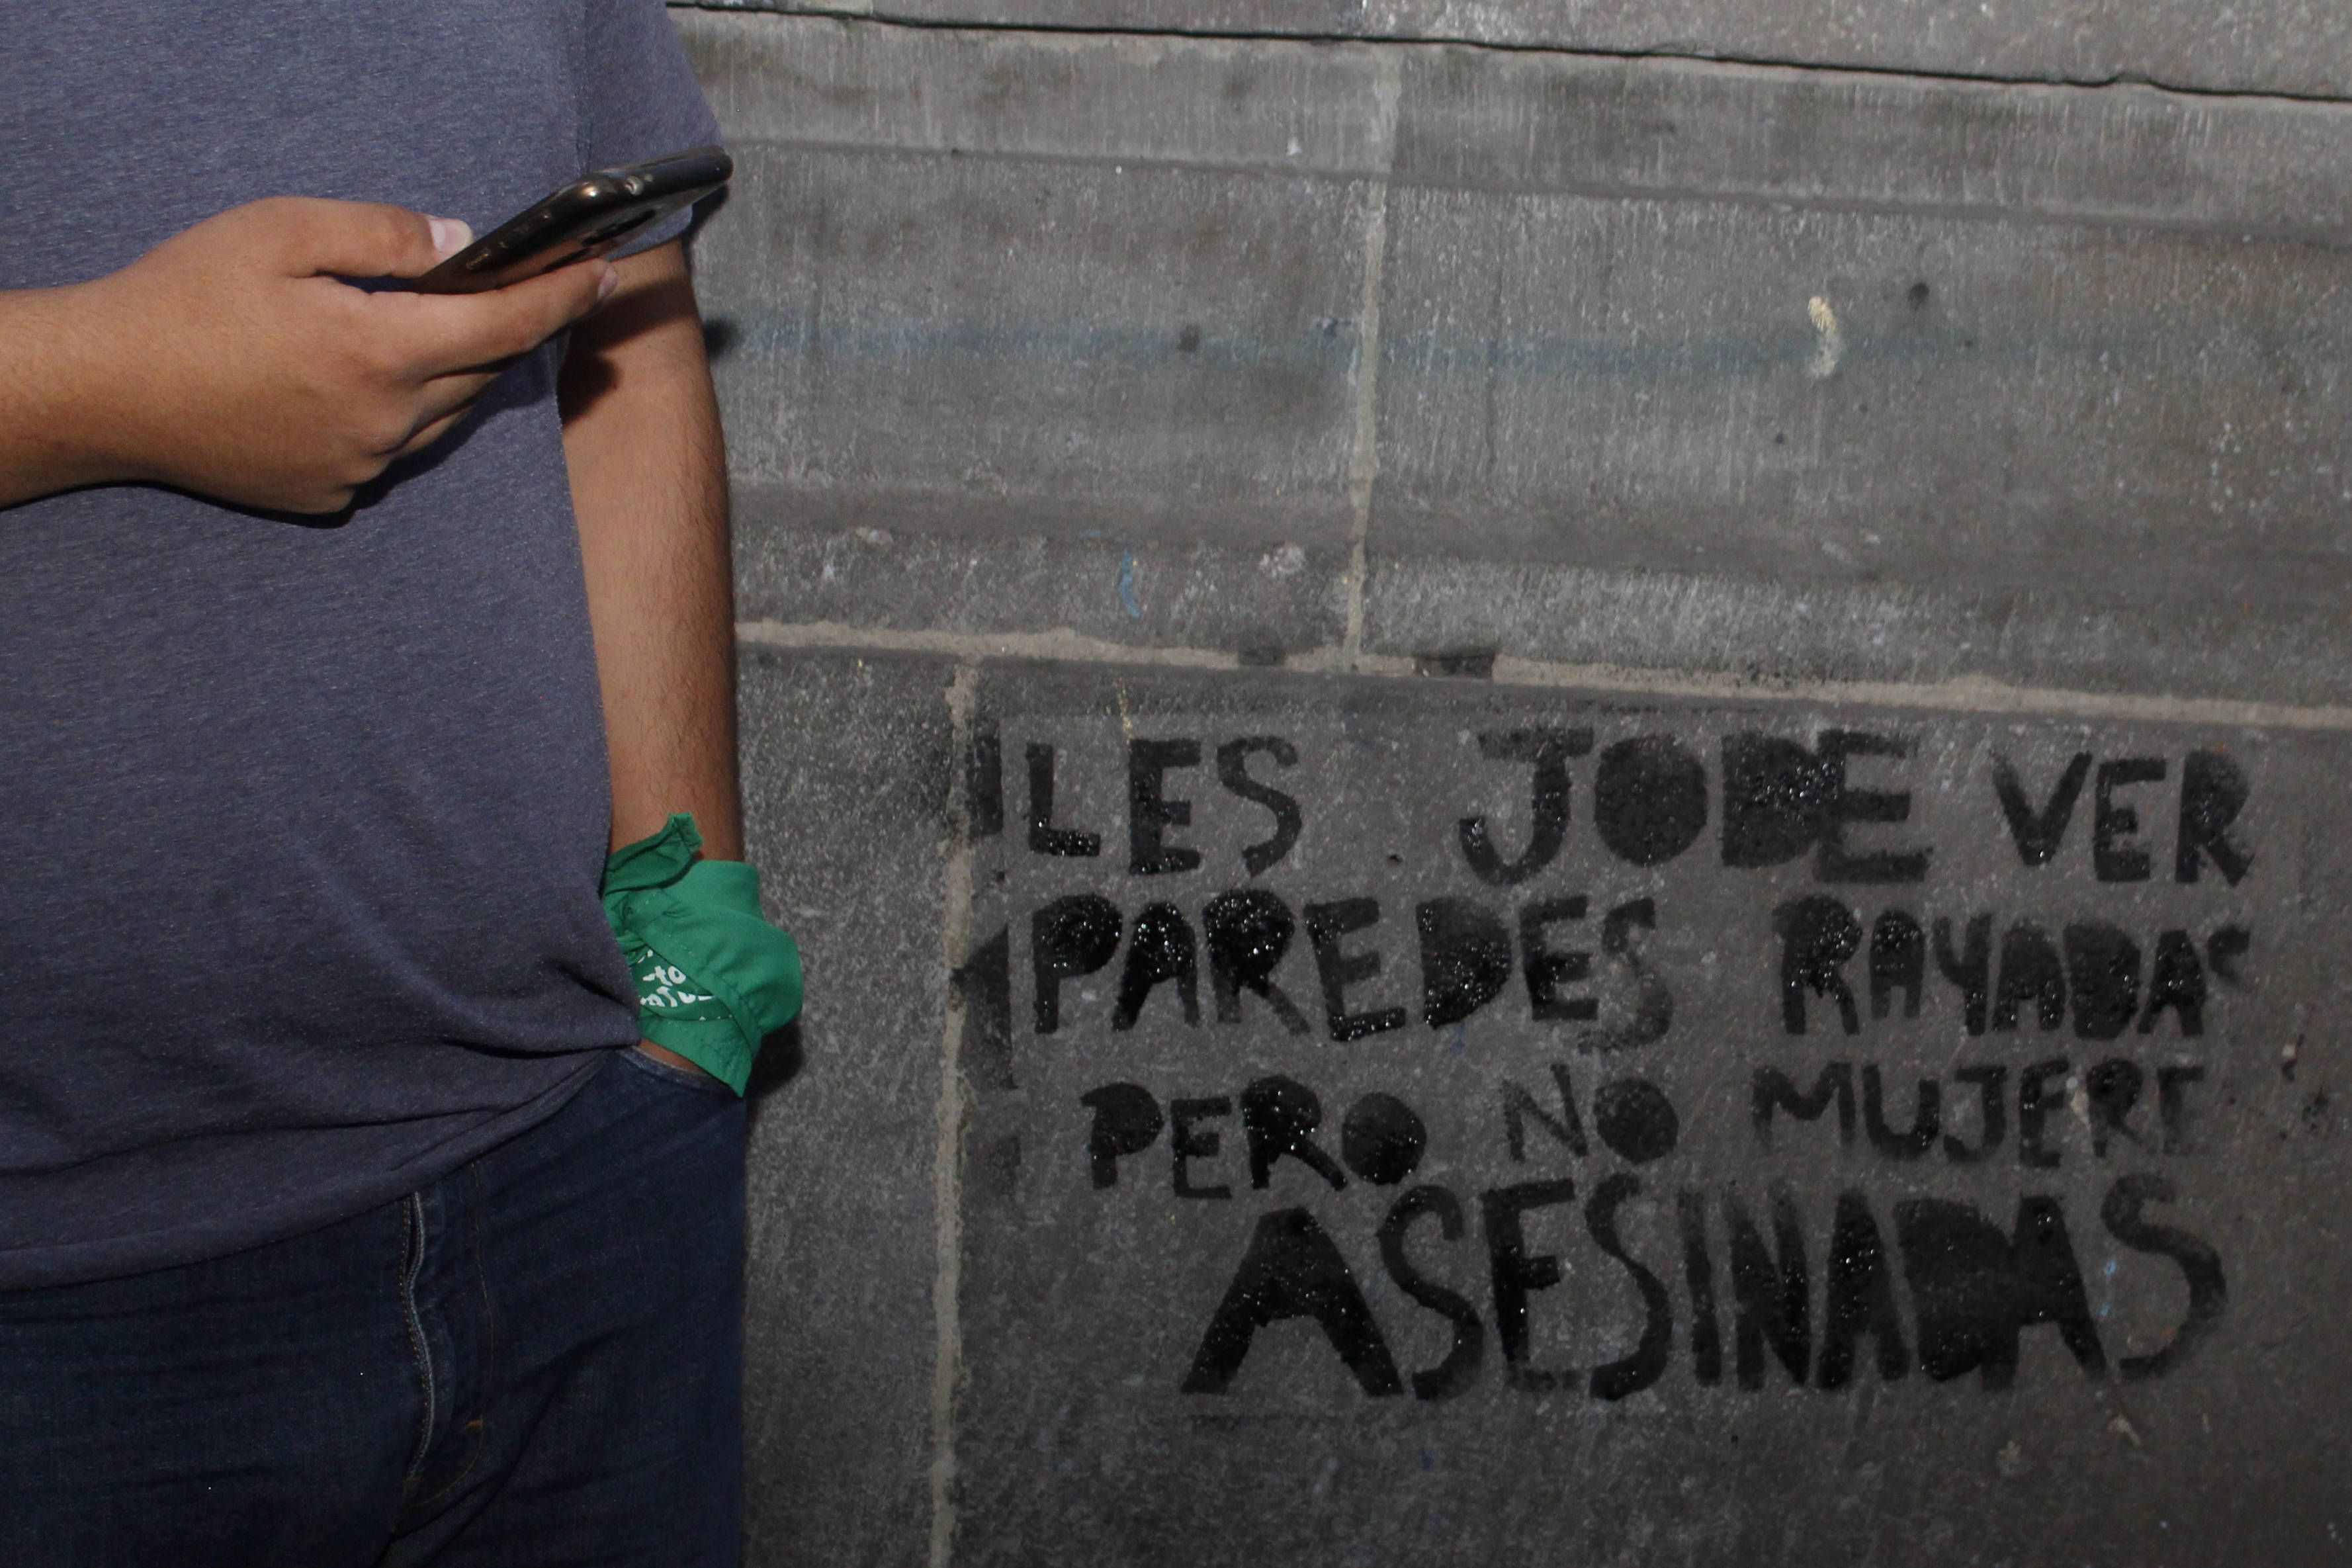 LES JODE VER
PAREDES RAYADAS
PERO NO MUJERE
ASESINADAS